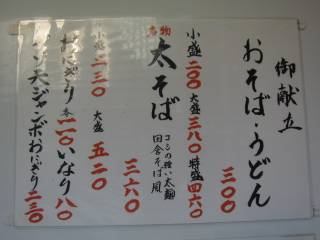 御献立
おそば・うどん
三〇〇
小盛 二〇〇 大盛 三八〇 特盛 四六〇
名物
太そば
コシの強い太麺
田舎そば風
三六〇
小盛 二三〇 大盛 五二〇
おにぎり 各一一〇 いなり 八〇
天ジャンボおにぎり 二三〇